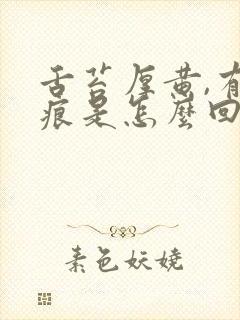 舌苔厚黄,有
痕是怎麼回
素色妖娆